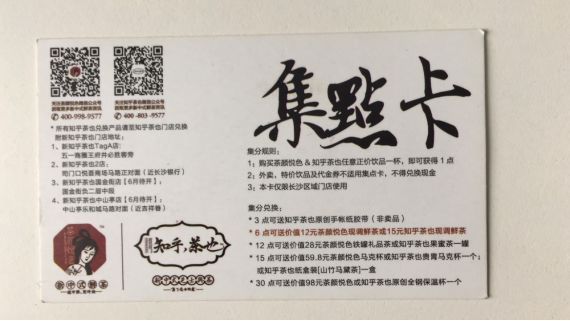 集點卡
关注茶颜悦色微信公众号
获取更多新中式鲜茶资讯
400-998-9577
关注知乎茶也微信公众号
获取更多新中式鲜茶资讯
400-803-9577
* 所有知乎茶也兑换产品请至知乎茶也门店兑换
附新知乎茶也门店地址：
1、新知乎茶也TagA店：
五一商圈王府井必胜客旁
2、新知乎茶也2店：
司门口悦荟商场马路正对面（近长沙银行）
3、新知乎茶也国金街店【6月待开】：
国金街负二层中段
4、新知乎茶也中山亭店【6月待开】：
中山亭乐和城马路正对面（近吉祥巷）
集分规则：
1；购买茶颜悦色 & 知乎茶也任意正价饮品一杯，即可获得 1 点
2；外卖、特价饮品及代金券不适用集点卡，不得兑换现金
3；本卡仅限长沙区域门店使用
集分兑换：
* 3 点可送知乎茶也原创手帐纸胶带（非卖品）
* 6 点可送价值12元茶颜悦色现调鲜茶或15元知乎茶也现调鲜茶
* 12 点可送价值28元茶颜悦色铁罐礼品茶或知乎茶也果蜜茶一罐
* 15 点可送价值59.8元茶颜悦色马克杯或知乎茶也贵青马克杯一个；
或知乎茶也纸盒装[山竹马黛茶]一盒
* 30 点可送价值98元茶颜悦色或知乎茶也原创全钢保温杯一个
新中式鲜茶
知乎，茶也